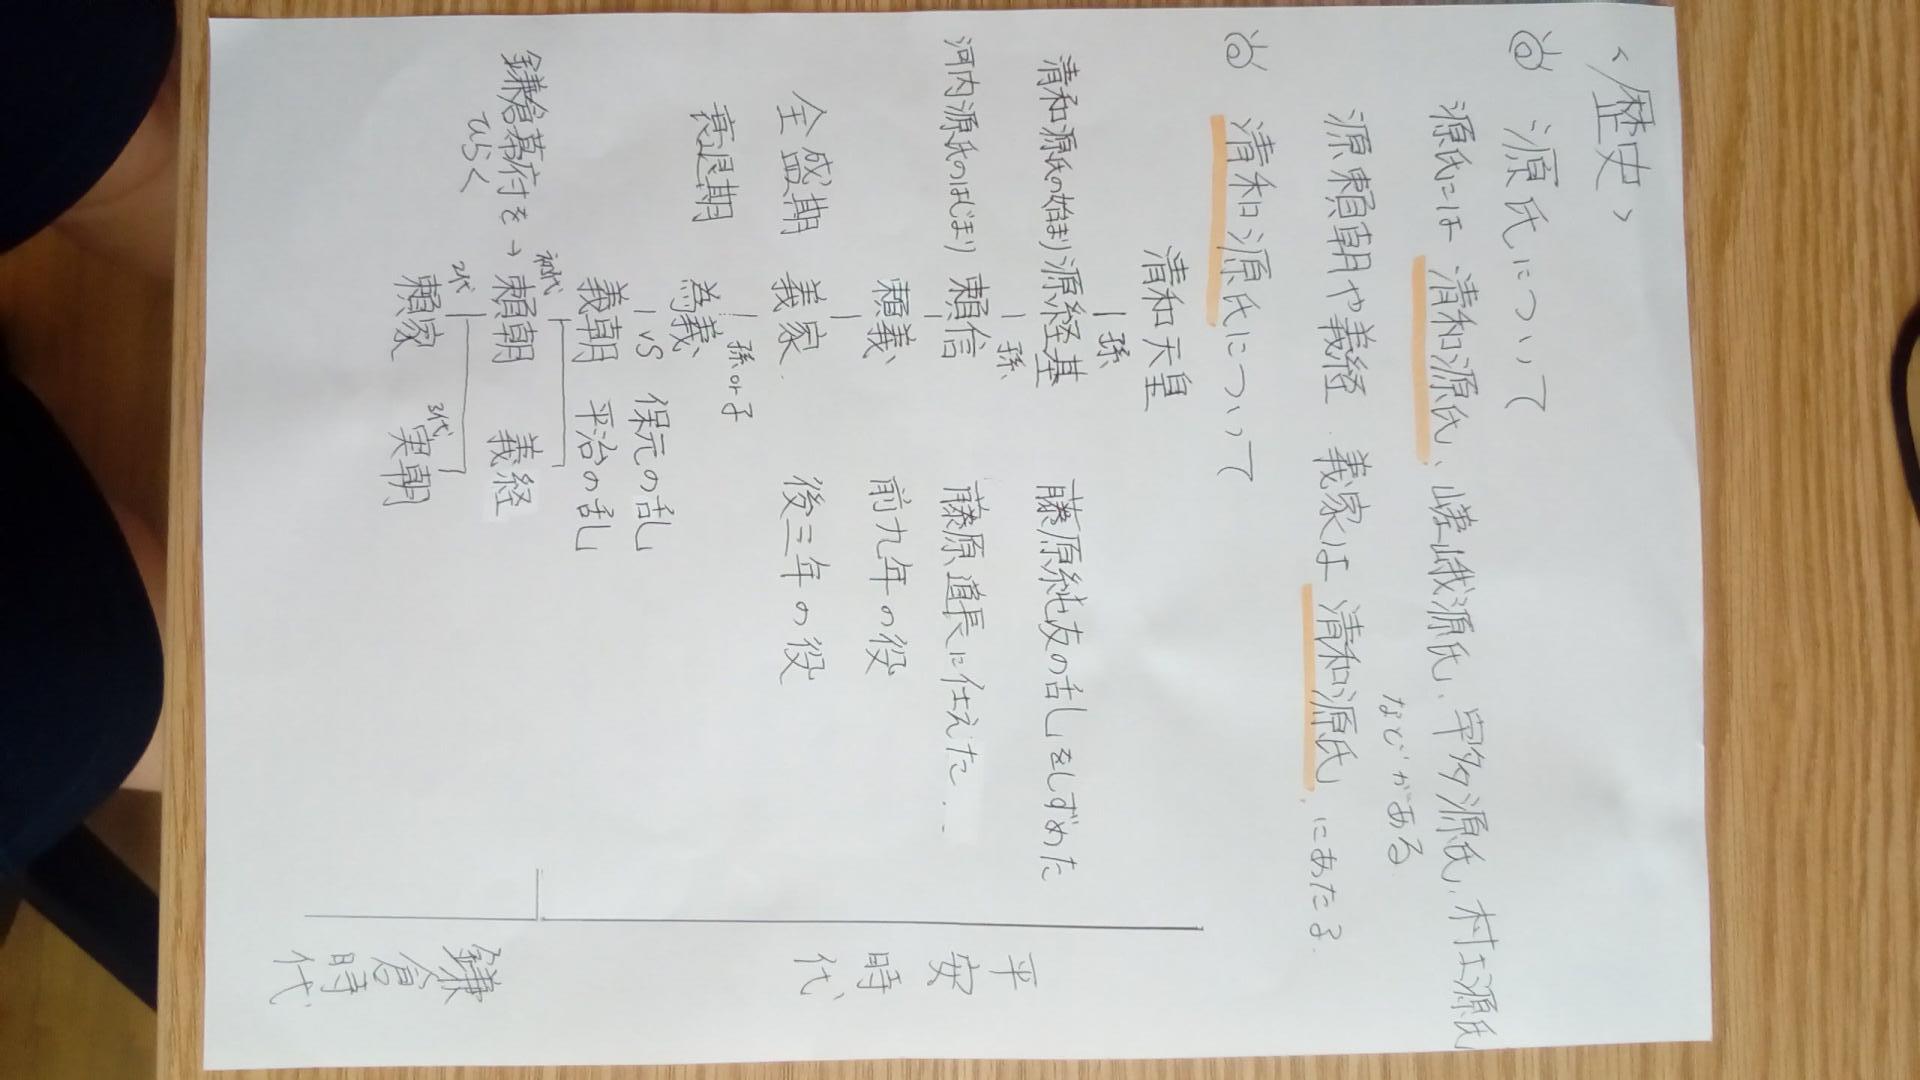 <歴史>
源氏について
源氏には 清和源氏、嵯峨源氏、宇多源氏、村上源氏
などがある
源頼朝や義経、義家は 清和源氏、にあたる.
清和源氏について
清和天皇
孫
清和源氏の始まり 源経基 藤原純友の乱をしずめた
孫
河内源氏のはじまり 頼信 藤原道長に仕えた
頼義 前九年の役
全盛期 義家 後三年の役
孫or子
衰退期 為義
vs 保元の乱
義朝 平治の乱
初代
鎌倉幕府を → 頼朝 義経
ひらく
2代 3代
頼家 実朝
平安時代
鎌倉時代